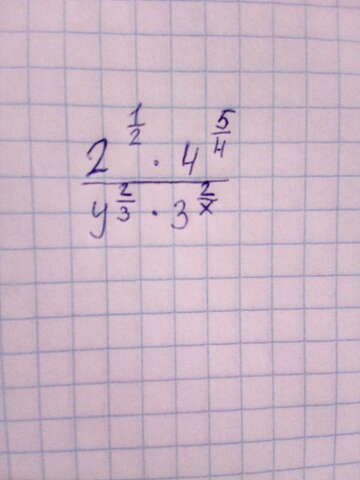 2^{\frac{1}{2}} · 4^{\frac{5}{4}}
y^{\frac{2}{3}} · 3^{\frac{2}{x}}